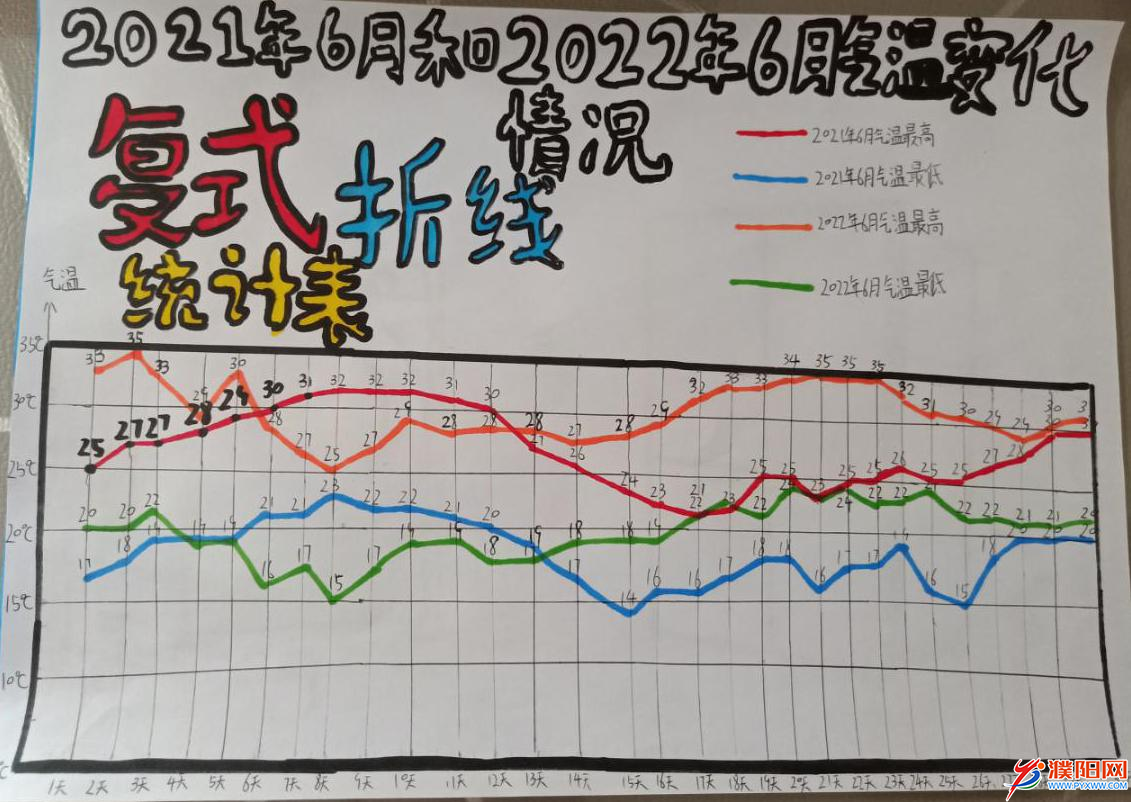 2021年6月和2022年6月气温变化
情况
复式折线
统计表
2021年6月气温最高
2021年6月气温最低
2022年6月气温最高
2022年6月气温最低
气温
35℃
30℃
25℃
20℃
15℃
10℃
33 35 33 29 30 28 27 25 27 29 28 28 28 27 28 29 32 33 33 34 35 35 35 32 31 30 29 29 30
25 27 27 28 29 30 31 32 32 32 31 30 27 26 24 23 22 23 25 25 23 25 25 26 25 25 27 28 30
20 20 22 19 19 16 17 15 17 19 19 18 18 18 18 19 22 24 24 22 22 22 22 21 21
17 18 19 21 21 23 22 22 21 20 19 17 14 16 16 17 18 18 16 17 17 19 16 15 18 20 20 20
1天 2天 3天 4天 5天 6天 7天 8天 9天 10天 11天 12天 13天 14天 15天 16天 17天 18天 19天 20天 21天 22天 23天 24天 25天 26天
濮阳网
WWW.PYXWW.COM